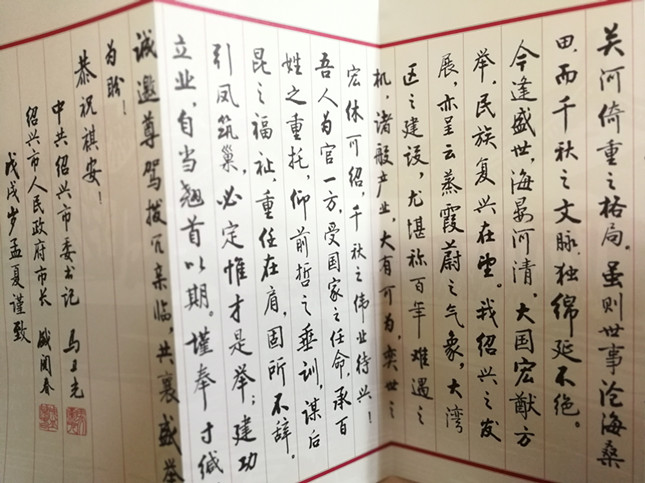 关河倚重之格局。虽则世事沧海桑
田，而千秋之文脉，独绵延不绝。
今逢盛世，海晏河清。大国宏猷方
举，民族复兴在望。我绍兴之发
展，亦呈云蒸霞蔚之气象，大湾
区之建设，尤堪称百年难遇之
机，诸般产业，大有可为，奕世之
宏休可绍，千秋之伟业待兴！
吾人为官一方，受国家之任命，承百
姓之重托，仰前哲之垂训，谋后
昆之福祉，重任在肩，固所不辞。
引凤筑巢，必定惟才是举；建功
立业，自当翘首以期。谨奉寸缄
诚邀尊驾拨冗亲临，共襄盛举
为盼！
恭祝祺安！
中共绍兴市委书记 马卫光
绍兴市人民政府市长 盛阅春
戊戌岁孟夏谨致